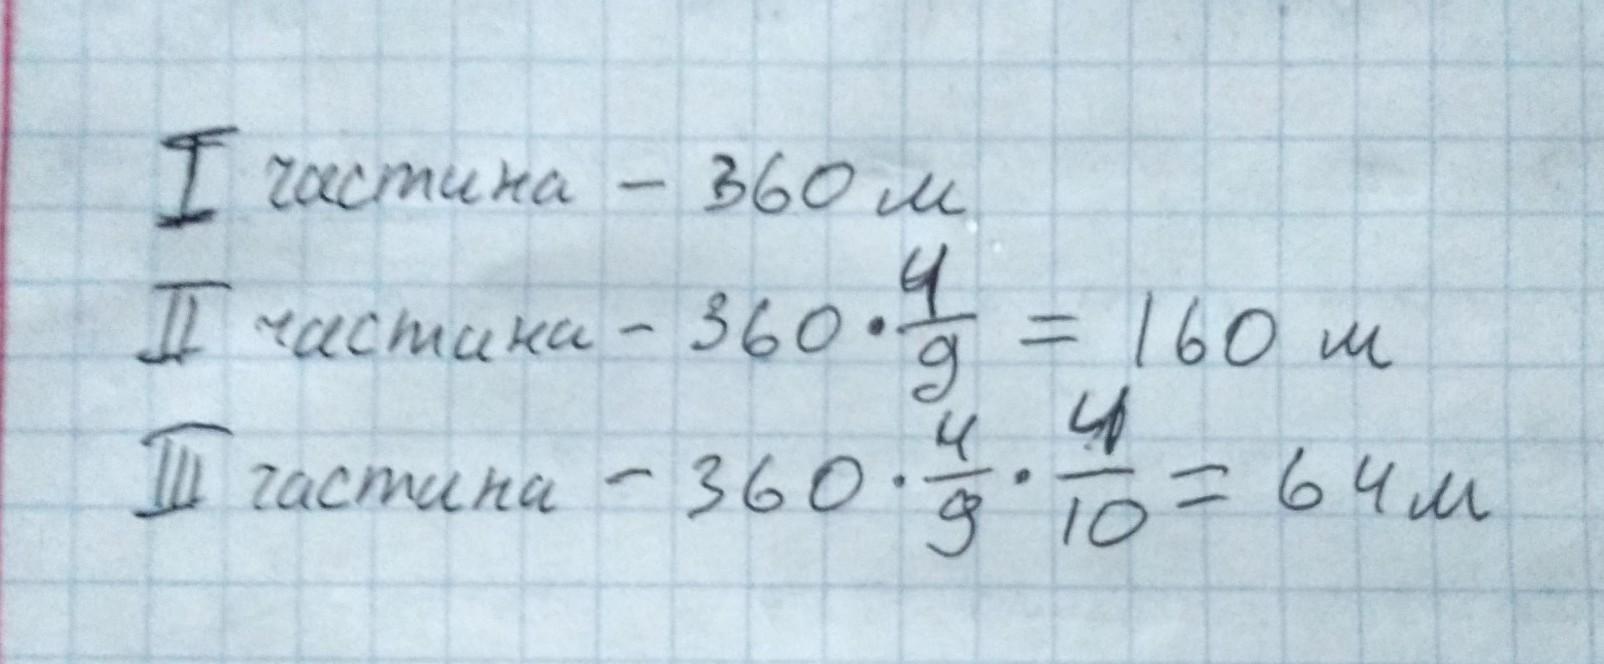 I частина - 360 м
II частина - 360 · 4/9 = 160 м
III частина - 360 · 4/9 · 4/10 = 64 м